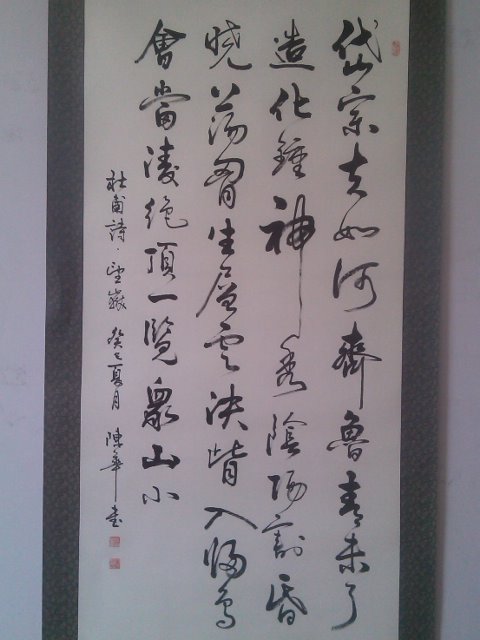 岱宗夫如何齊魯青未了
造化鍾神秀陰陽割昏
曉蕩胷生層雲決眥入歸鳥
會當凌絕頂一覽眾山小
杜甫詩·望嶽 癸巳夏月 陳華書